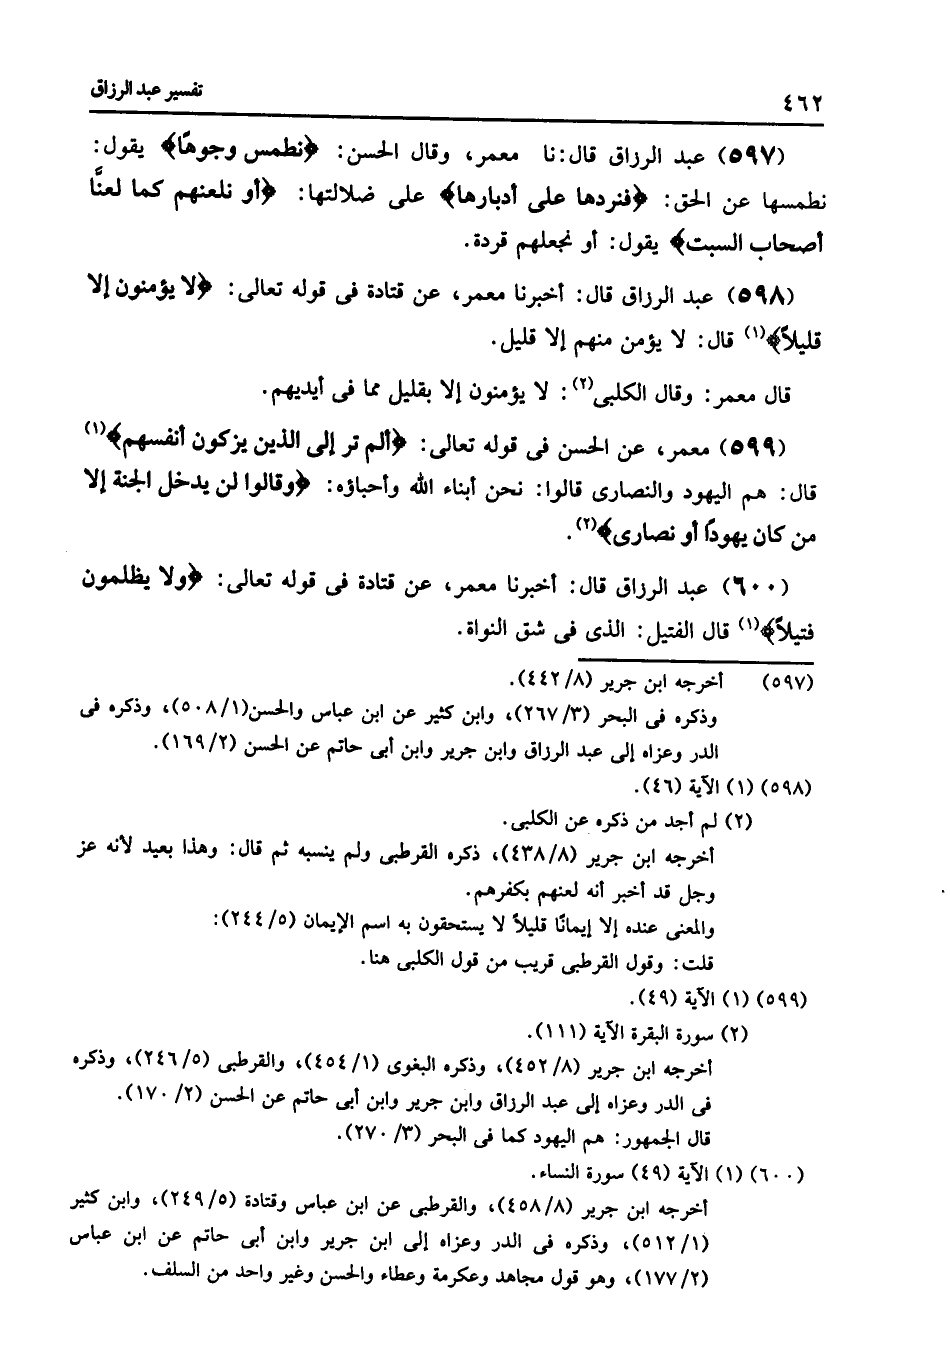 ٤٦٢ تفسير عبد الرزاق
(٥٩٧) عبد الرزاق قال: نا معمر، وقال الحسن: ﴿نطمس وجوهًا﴾ يقول:
نطمسها عن الحق: ﴿فنردها على أدبارها﴾ على ضلالتها: ﴿أو نلعنهم كما لعنَّا
أصحاب السبت﴾ يقول: أو نجعلهم قردة.
(٥٩٨) عبد الرزاق قال: أخبرنا معمر، عن قتادة فى قوله تعالى: ﴿لا يؤمنون إلا
قليلاً﴾(١) قال: لا يؤمن منهم إلا قليل.
قال معمر: وقال الكلبى(٢): لا يؤمنون إلا بقليل مما فى أيديهم.
(٥٩٩) معمر، عن الحسن فى قوله تعالى: ﴿ألم تر إلى الذين يزكون أنفسهم﴾(١)
قال: هم اليهود والنصارى قالوا: نحن أبناء الله وأحباؤه: ﴿وقالوا لن يدخل الجنة إلا
من كان يهودًا أو نصارى﴾(٢).
(٦٠٠) عبد الرزاق قال: أخبرنا معمر، عن قتادة فى قوله تعالى: ﴿ولا يظلمون
فتيلاً﴾(١) قال الفتيل: الذى فى شق النواة.
(٥٩٧) أخرجه ابن جرير (٤٤٢/٨).
وذكره فى البحر (٢٦٧/٣)، وابن كثير عن ابن عباس والحسن(٥٠٨/١)، وذكره فى
الدر وعزاه إلى عبد الرزاق وابن جرير وابن أبى حاتم عن الحسن (١٦٩/٢).
(٥٩٨) (١) الآية (٤٦).
(٢) لم أجد من ذكره عن الكلبى.
أخرجه ابن جرير (٤٣٨/٨)، ذكره القرطبى ولم ينسبه ثم قال: وهذا بعيد لأنه عز
وجل قد أخبر أنه لعنهم بكفرهم.
والمعنى عنده إلا إيمانًا قليلاً لا يستحقون به اسم الإيمان (٢٤٤/٥):
قلت: وقول القرطبى قريب من قول الكلبى هنا.
(٥٩٩) (١) الآية (٤٩).
(٢) سورة البقرة الآية (١١١).
أخرجه ابن جرير (٤٥٢/٨)، وذكره البغوى (٤٥٤/١)، والقرطبى (٢٤٦/٥)، وذكره
فى الدر وعزاه إلى عبد الرزاق وابن جرير وابن أبى حاتم عن الحسن (١٧٠/٢).
قال الجمهور: هم اليهود كما فى البحر (٢٧٠/٣).
(٦٠٠) (١) الآية (٤٩) سورة النساء.
أخرجه ابن جرير (٤٥٨/٨)، والقرطبى عن ابن عباس وقتادة (٢٤٩/٥)، وابن كثير
(٥١٢/١)، وذكره فى الدر وعزاه إلى ابن جرير وابن أبى حاتم عن ابن عباس
(١٧٧/٢)، وهو قول مجاهد وعكرمة وعطاء والحسن وغير واحد من السلف.